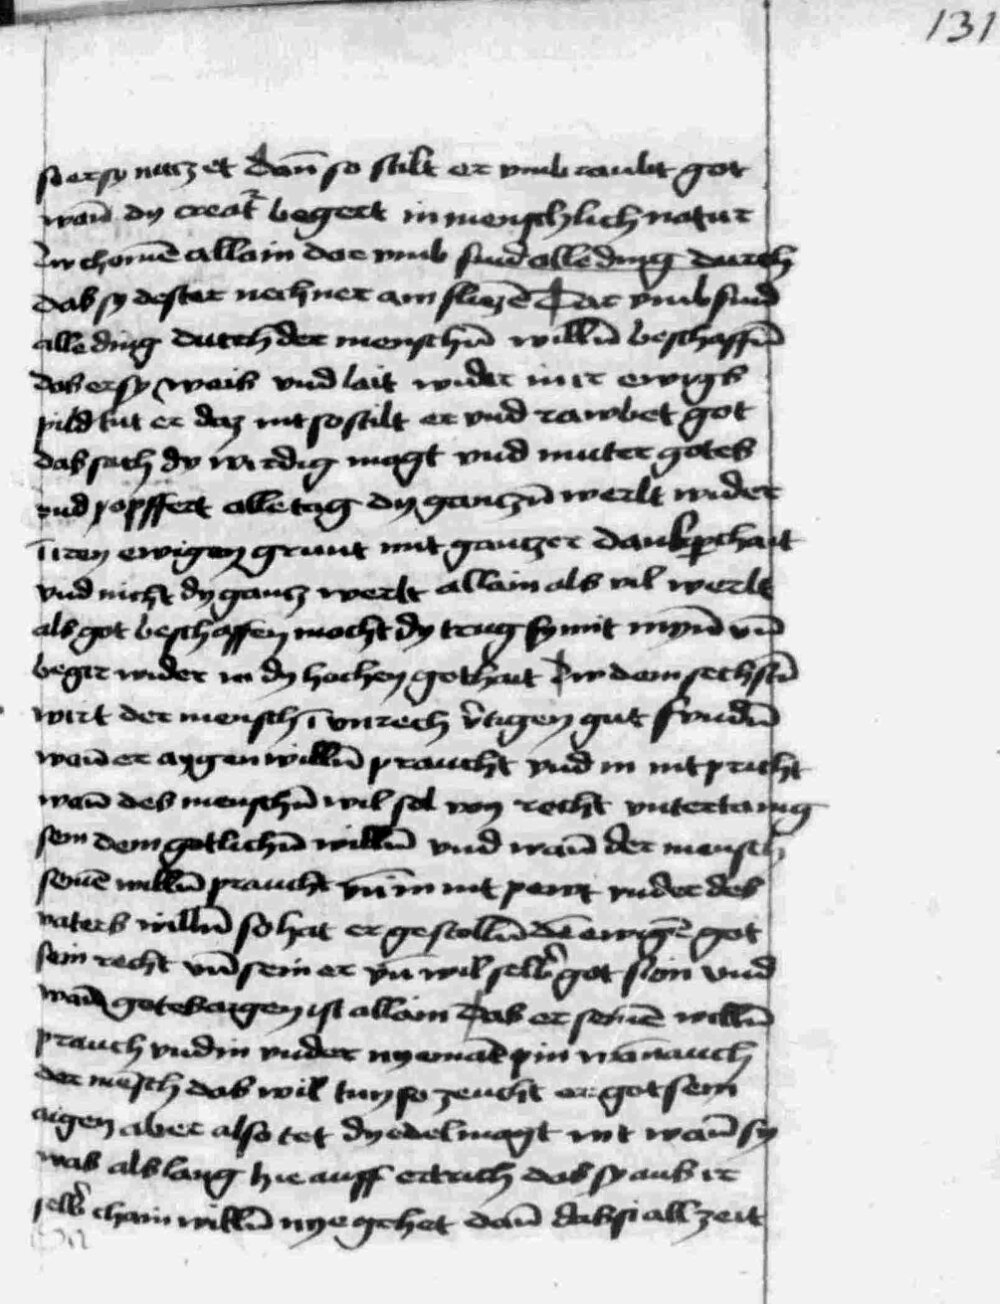 131
so er sy niczet dan̄ so stilt er vnib raubt got
wan̄ dy creat᷑ begert in menschlich natur
zw chomē allain dar vmb sind alle ding durch
das sy dester nechner am fliezē Dar vmb sind
alle ding durch der menschn̄ willn̄ beschaffn̄
das er sy wais vnd lait wider in ir ewigs
pild tut er daz nit so stilt er vnd rawbet got
das sach dy wirdig magt vnd muter gotes
vnd opffert alle tag dy ganczn̄ werlt wider
iren ewigen grunt mit ganczer dankp̄chait
vnd nicht dy gancz werlt allain als vil werlt
als got beschaffen mocht dy trug sy mit mynn̄ vn̄
begir wider in dy hochen gothait Zw dem sechstn̄
wirt der mensch ī vnrech v̄tigen gut fundn̄
wan̄ er aygen willn̄ praucht vnd in nit pricht
wan̄ des menschn̄ wil sol von recht vntertanig
sein dem gotlichn̄ willn̄ vnd wan̄ der mensch
seinē willn̄ praucht vn̄ in nit peugt vnder des
vaters willn̄ so hat er gestolln̄ dē ewigē got
sein recht vn̄ sein er vn̄ wil selb᷑ got sein vnd
wan̄ gotes aigen ist allain Das er seinē willn̄
prauch vnd in vnder nyemāt pin wan̄ auch
der mēsch das wil tun so zeucht er got sein
aigen aber also tet dy edel magt nit wan̄ sy
was als lang hie auff ertrich das sy aus ir
selb᷑ chain willn̄ nye gehet dan̄ das si all zeit